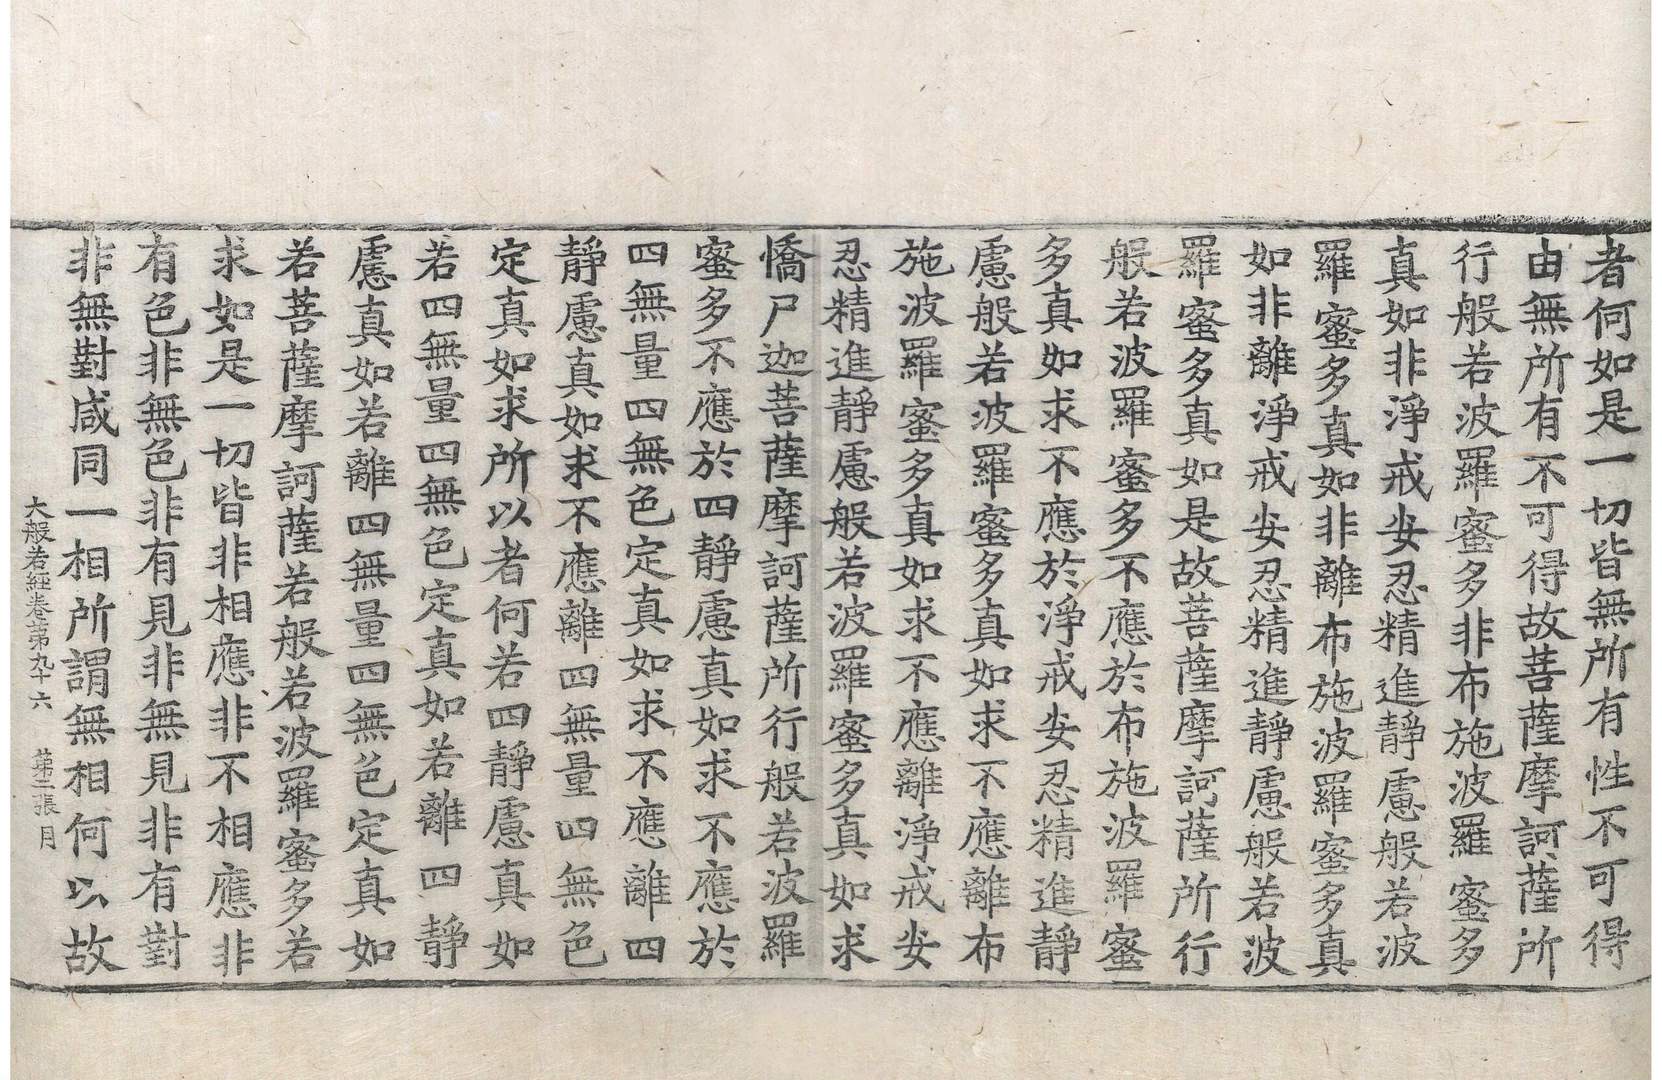 者何如是一切皆無所有性不可得
由無所有不可得故菩薩摩訶薩所
行般若波羅蜜多非布施波羅蜜多
真如非淨戒安忍精進靜慮般若波
羅蜜多真如非離布施波羅蜜多真
如非離淨戒安忍精進靜慮般若波
羅蜜多真如是故菩薩摩訶薩所行
般若波羅蜜多不應於布施波羅蜜
多真如求不應於淨戒安忍精進靜
慮般若波羅蜜多真如求不應離布
施波羅蜜多真如求不應離淨戒安
忍精進靜慮般若波羅蜜多真如求
憍尸迦菩薩摩訶薩所行般若波羅
蜜多不應於四靜慮真如求不應於
四無量四無色定真如求不應離四
靜慮真如求不應離四無量四無色
定真如求所以者何若四靜慮真如
若四無量四無色定真如若離四靜
慮真如若離四無量四無色定真如
若菩薩摩訶薩若般若波羅蜜多若
求如是一切皆非相應非不相應非
有色非無色非有見非無見非有對
非無對咸同一相所謂無相何以故
大般若經卷苐九十六 苐三張 月